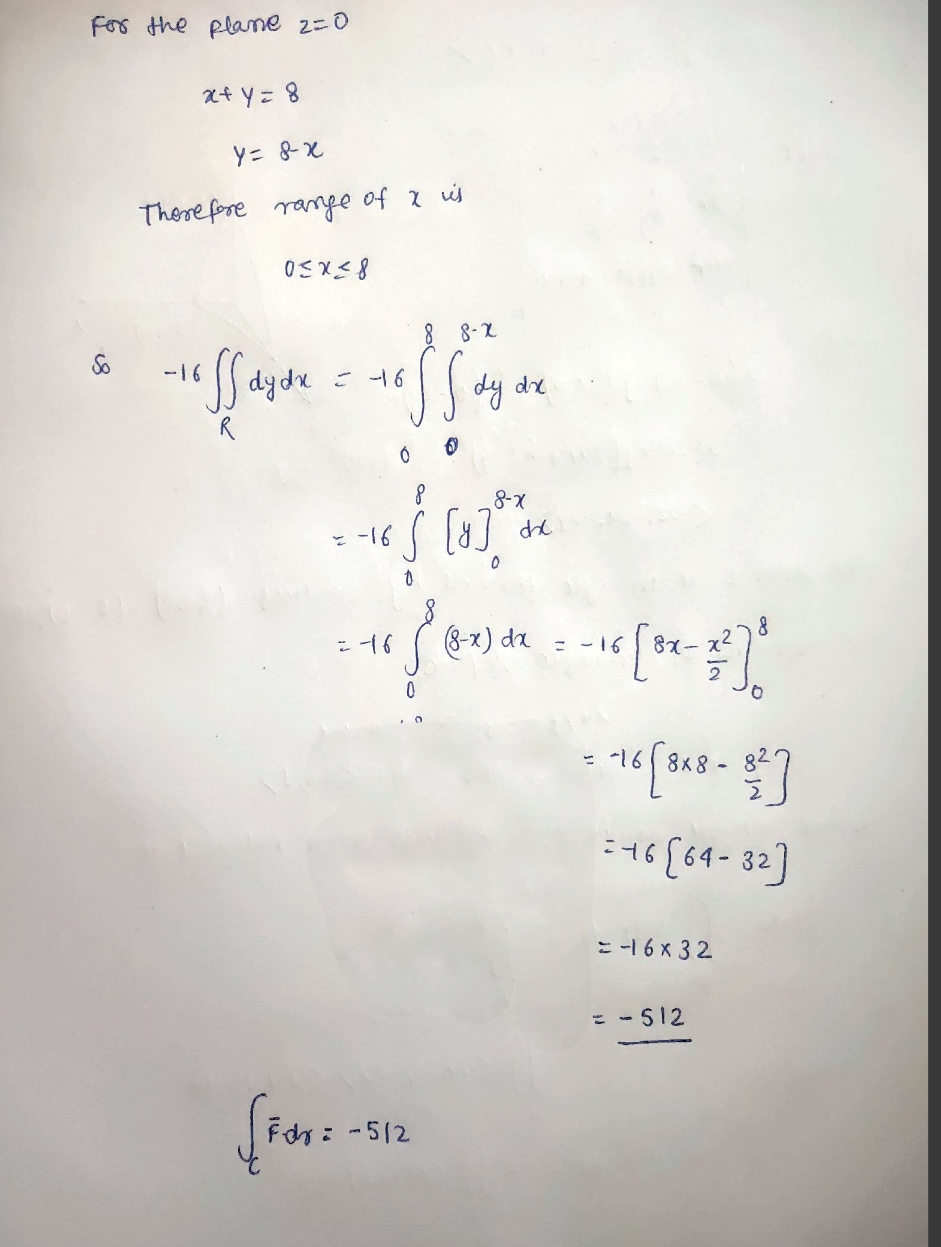 For the plane z=0
x+y=8
y=8-x
Therefore range of x is
0≤x≤8
So -16∬_R dydx = -16 ∫_0^8 ∫_0^{8-x} dy dx
= -16 ∫_0^8 [y]_0^{8-x} dx
= -16 ∫_0^8 (8-x) dx = -16 [8x - x²/2]_0^8
= -16 [8×8 - 8²/2]
= -16 [64-32]
= -16×32
= -512
∫_C F̄dr = -512